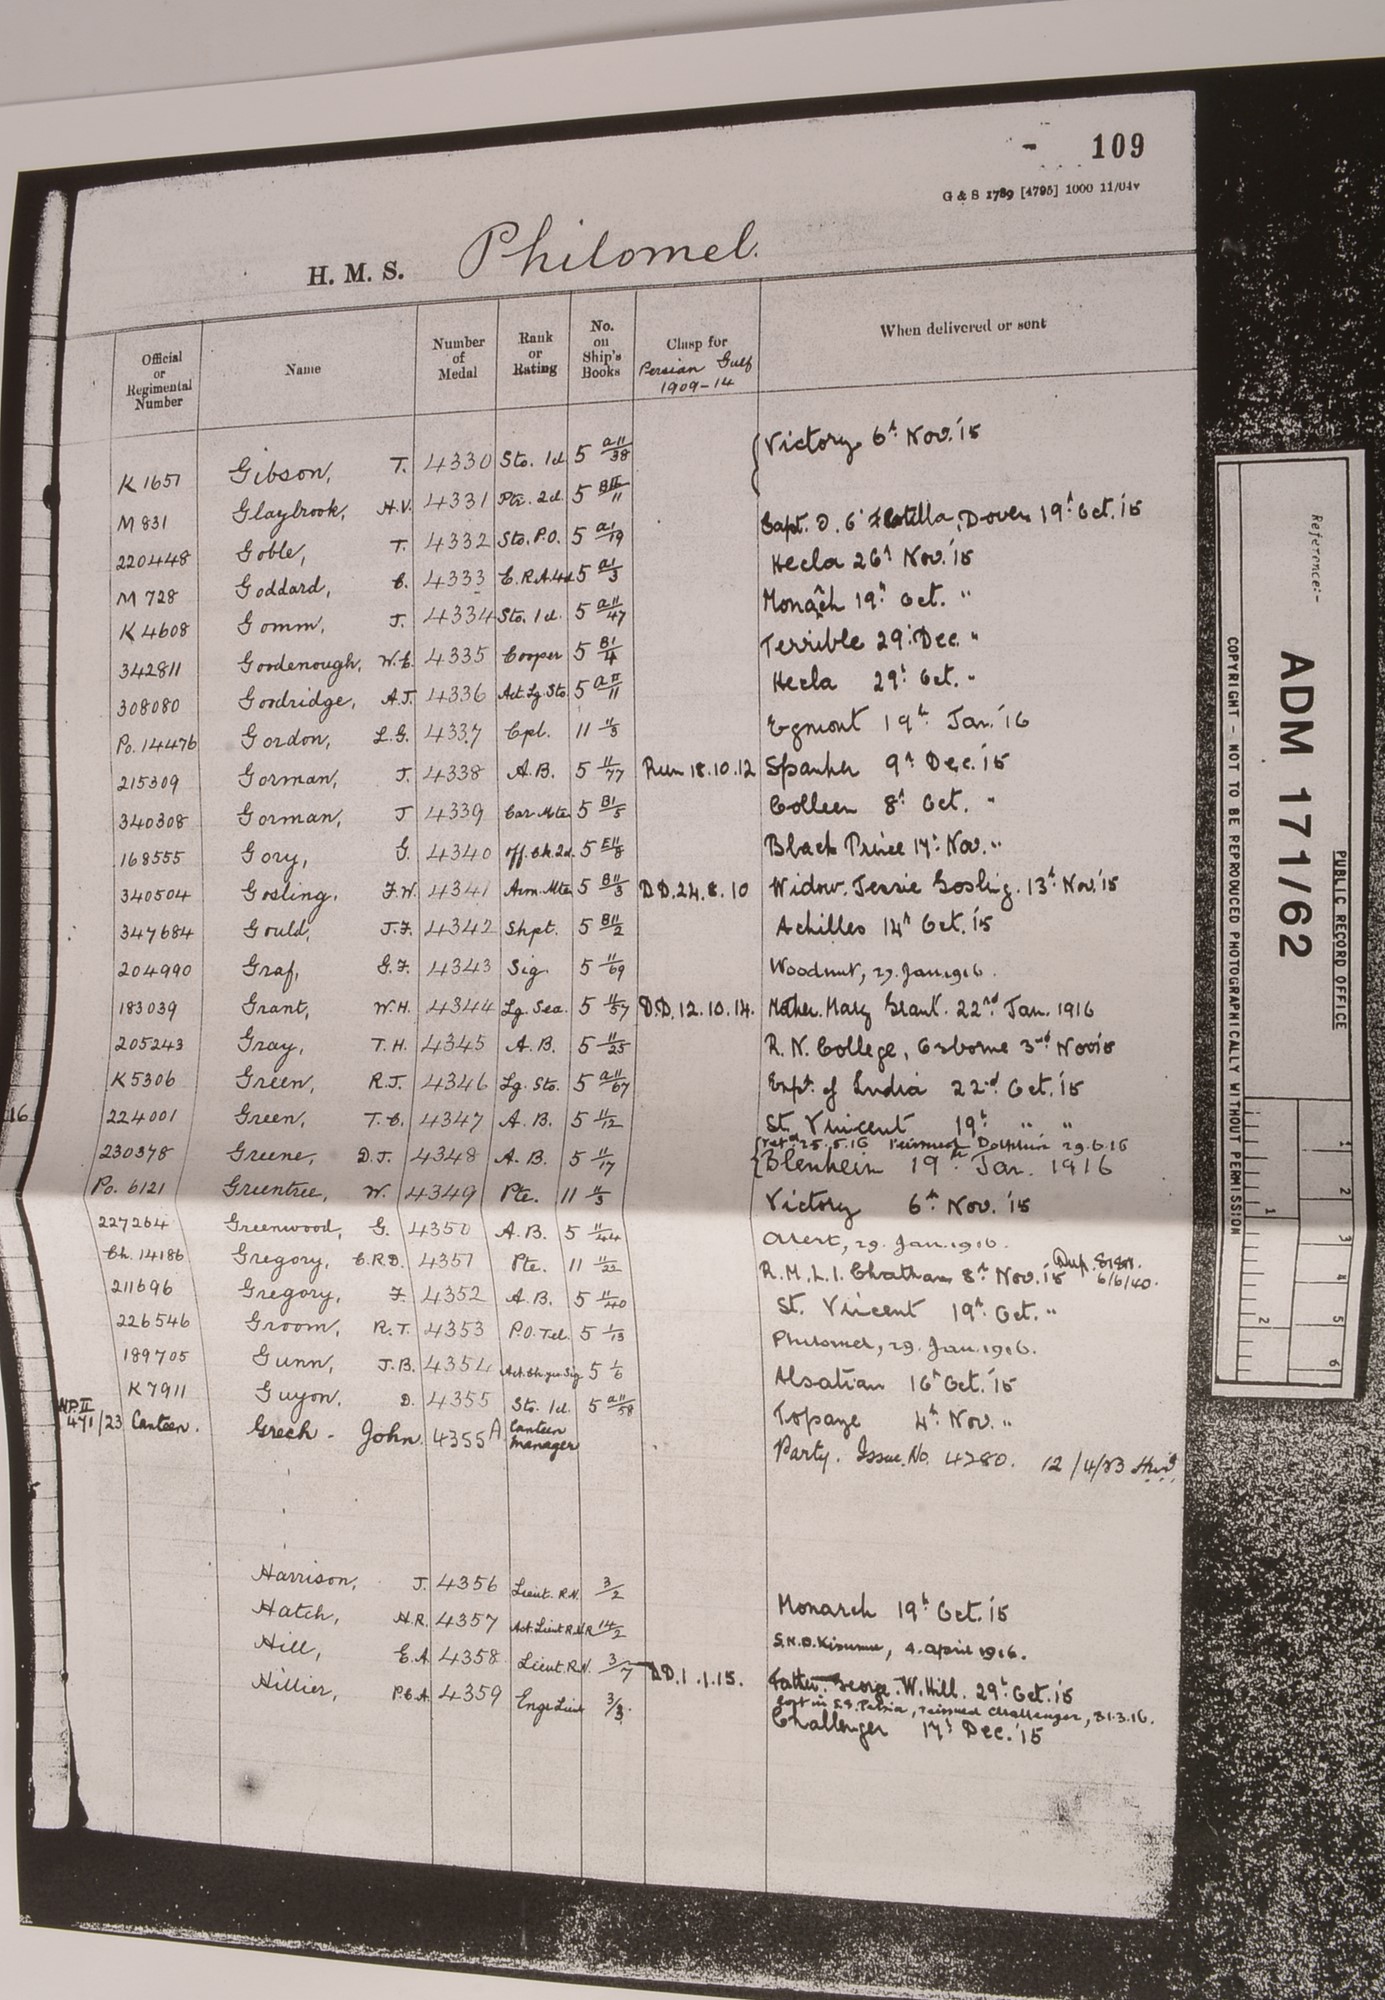 109
G & S 1789 [4795] 1000 11/04v
H. M. S. Philomel.
Official or Regimental Number
Name
Number of Medal
Rank or Rating
No. on Ship's Books
Clasp for Persian Gulf 1909-14
When delivered or sent
K 1651 Gibson, T. 4330 Sto. 1cl. 5 a11/38 Victory 6th Nov. '15
M 831 Glaybrook, H.V. 4331 Pte. 2cl. 5 BII/11
220448 Goble, T. 4332 Sto. P.O. 5 a1/19 Capt. D. 6th Flotilla, Dover 19th Oct. 15
M 728 Goddard, C. 4333 E.R.A. 4cl 5 a1/3 Hecla 26th Nov. '15
K 4608 Gomm, J. 4334 Sto. 1cl. 5 a11/47 Monarch 19th Oct. "
342811 Goodenough, W.C. 4335 Cooper 5 B1/4 Terrible 29th Dec. "
308080 Goodridge, A.J. 4336 Act. Lg. Sto. 5 a11/11 Hecla 29th Oct. "
Po. 14476 Gordon, L.G. 4337 Cpl. 11 11/3 Egmont 19th Jan. '16
215309 Gorman, J. 4338 A.B. 5 11/77 Run 18.10.12 Spanker 9th Dec. '15
340308 Gorman, J 4339 Car. Mte. 5 B1/5 Colleen 8th Oct. "
168555 Gory, G. 4340 Off. Ck. 2cl. 5 E11/8 Black Prince 17th Nov. "
340504 Gosling, F.W. 4341 Arm. Mte 5 B11/3 D.D. 24.8.10 Widow. Jessie Gosling. 13th Nov. '15
347684 Gould, J.F. 4342 Shpt. 5 B11/2 Achilles 14th Oct. '15
204990 Graf, G.F. 4343 Sig 5 11/69 Woodnut, 29. Jan. 1916.
183039 Grant, W.H. 4344 Lg. Sea. 5 11/57 D.D. 12.10.14. Mother. Mary Grant. 22nd Jan. 1916
205243 Gray, T.H. 4345 A.B. 5 11/25 R.N. College, Osborne 3rd Nov 15
K 5306 Green, R.J. 4346 Lg. Sto. 5 a11/67 Empt. of India 22nd Oct. '15
16 224001 Green, T.C. 4347 A.B. 5 11/12 St. Vincent 19th " "
retd 25.5.16 reissued Dolphin 29.6.16
230378 Greene, D.J. 4348 A.B. 5 11/17 Blenheim 19th Jan. 1916
Po. 6121 Greentree, W. 4349 Pte. 11 11/3 Victory 6th Nov. '15
227264 Greenwood, G. 4350 A.B. 5 11/44 Alert, 29. Jan. 1916.
Ch. 14186 Gregory, C.R.D. 4351 Pte. 11 11/22 R.M.L.I. Chatham 8th Nov. '15 Dup. 6/6/40.
211696 Gregory, F. 4352 A.B. 5 11/40 St. Vincent 19th Oct. "
226546 Groom, R.T. 4353 P.O. Tel. 5 1/13 Philomel, 29. Jan. 1916.
189705 Gunn, J.B. 4354 Act. Ch. Yeo. Sig 5 1/6 Alsatian 16th Oct. '15
K 7911 Guyon, D. 4355 Sto. 1cl. 5 a11/58 Topaze 4th Nov. "
NP.II 471/23 Canteen. Grech - John. 4355A Canteen Manager Party. Issue. No. 4280. 12/4/23
Harrison, J. 4356 Lieut. R.N. 3/2 Monarch 19th Oct. '15
Hatch, H.R. 4357 Act. Lieut R.N.R 14/2 S.N.O. Kisumu, 4. April 1916.
Hill, E.A 4358 Lieut. R.N. 3/7 D.D. 1.1.15. Father. George. W. Hill. 29th Oct. '15
Lost in S.S. Persia, reissued Challenger, 31.3.16.
Hillier, P.E.A. 4359 Engr Lieut 3/3. Challenger 17th Dec. '15
Reference:-
ADM 171/62
PUBLIC RECORD OFFICE
COPYRIGHT - NOT TO BE REPRODUCED PHOTOGRAPHICALLY WITHOUT PERMISSION
1 2
1 2 3 4 5 6